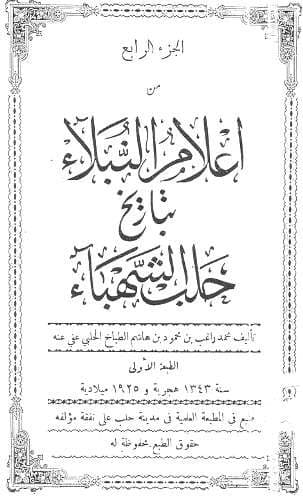 الجزء الرابع
من
إعلام النبلاء
بتاريخ
حلب الشهباء
تأليف محمد راغب بن محمود بن هاشم الطباخ الحلبي عفي عنه
الطبعة الأولى
سنة ١٣٤٣ هجرية و ١٩٢٥ ميلادية
طبع في المطبعة العلمية في مدينة حلب على نفقة مؤلفه
حقوق الطبع محفوظة له